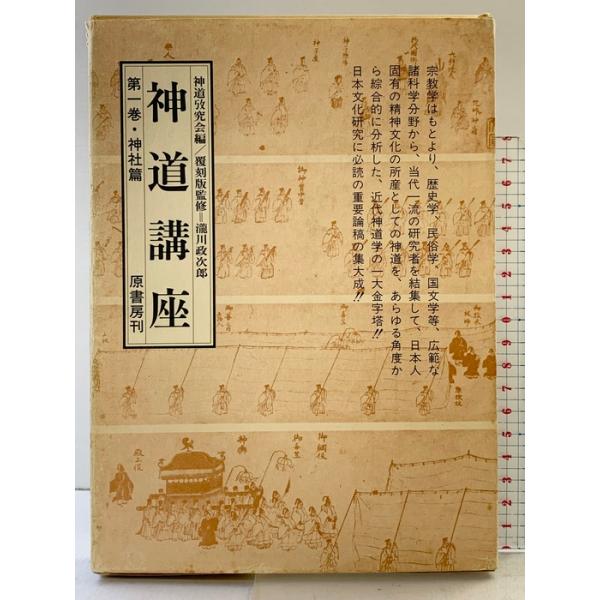 神道攷究会編／覆刻版監修＝瀧川政次郎
神道講座
第一巻・神社篇
原書房刊
宗教学はもとより、歴史学、民俗学、国文学等、広範な
諸科学分野から、当代一流の研究者を結集して、日本人
固有の精神文化の所産としての神道を、あらゆる角度か
ら綜合的に分析した、近代神道学の一大金字塔!!
日本文化研究に必読の重要論稿の集大成!!
殿上役
神輿
御長笠
御綱役